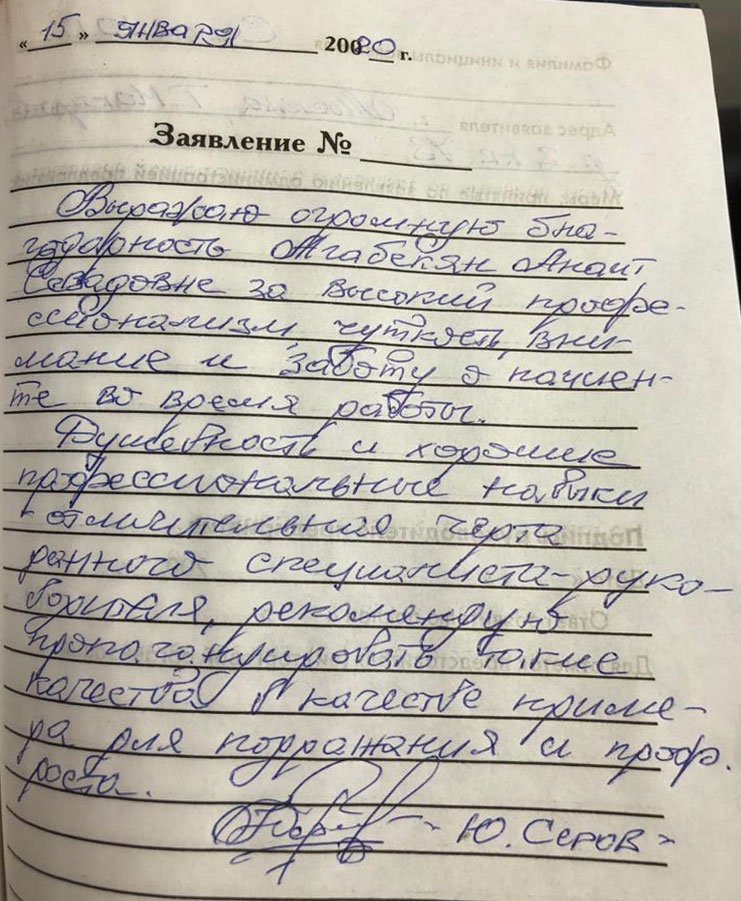 « 15 » ЯНВАРЯ 20020 г.
Заявление №
Выражаю огромную бла-
годарность Агабекян Анаит
Севадовне за высокий профе-
ссионализм, чуткость, вни-
мание и заботу о пациен-
те во время работы.
Душевность и хорошие
профессиональные навыки
- отличительная черта
данного специалиста-руко-
водителя, рекомендую
пропагандировать такие
качества в качестве приме-
ра для подражания и проф.
роста.
Ю. Серов
Фамилия и инициалы
Адрес заявителя